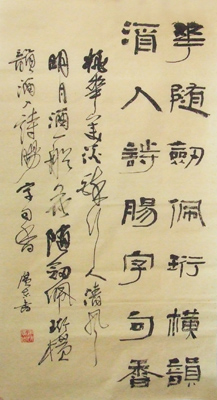 華隨劍佩珩橫韻
酒入詩腸字句香
桃華人清風
明月酒一船華隨劍佩珩橫
韻酒入詩腸字句香